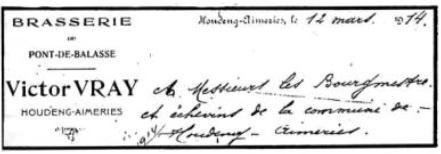 BRASSERIE
DU
PONT-DE-BALASSE
Victor VRAY
HOUDENG-AIMERIES
Houdeng-Aimeries, le 12 mars 1914.
A Messieurs les Bourgmestre
et échevins de la commune de -
Houdeng - Aimeries.